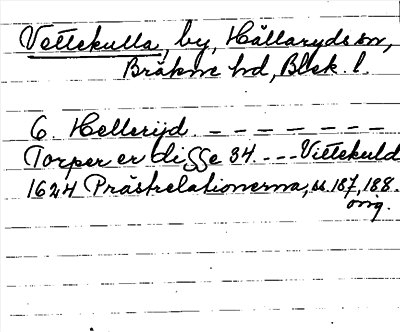 Vettekulla, by, Hällaryds sn,
Bräkne hd, Blek. l.
6. Hellerijd. – – – – – – –
Torper er disse 34. – – – Vittekuld
1624 Prästrelationerna, s. 187, 188.
orig.